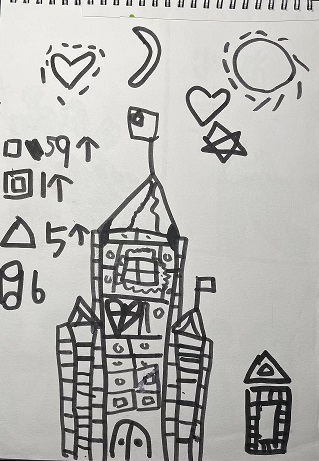 59↑
1↑
5↑
6